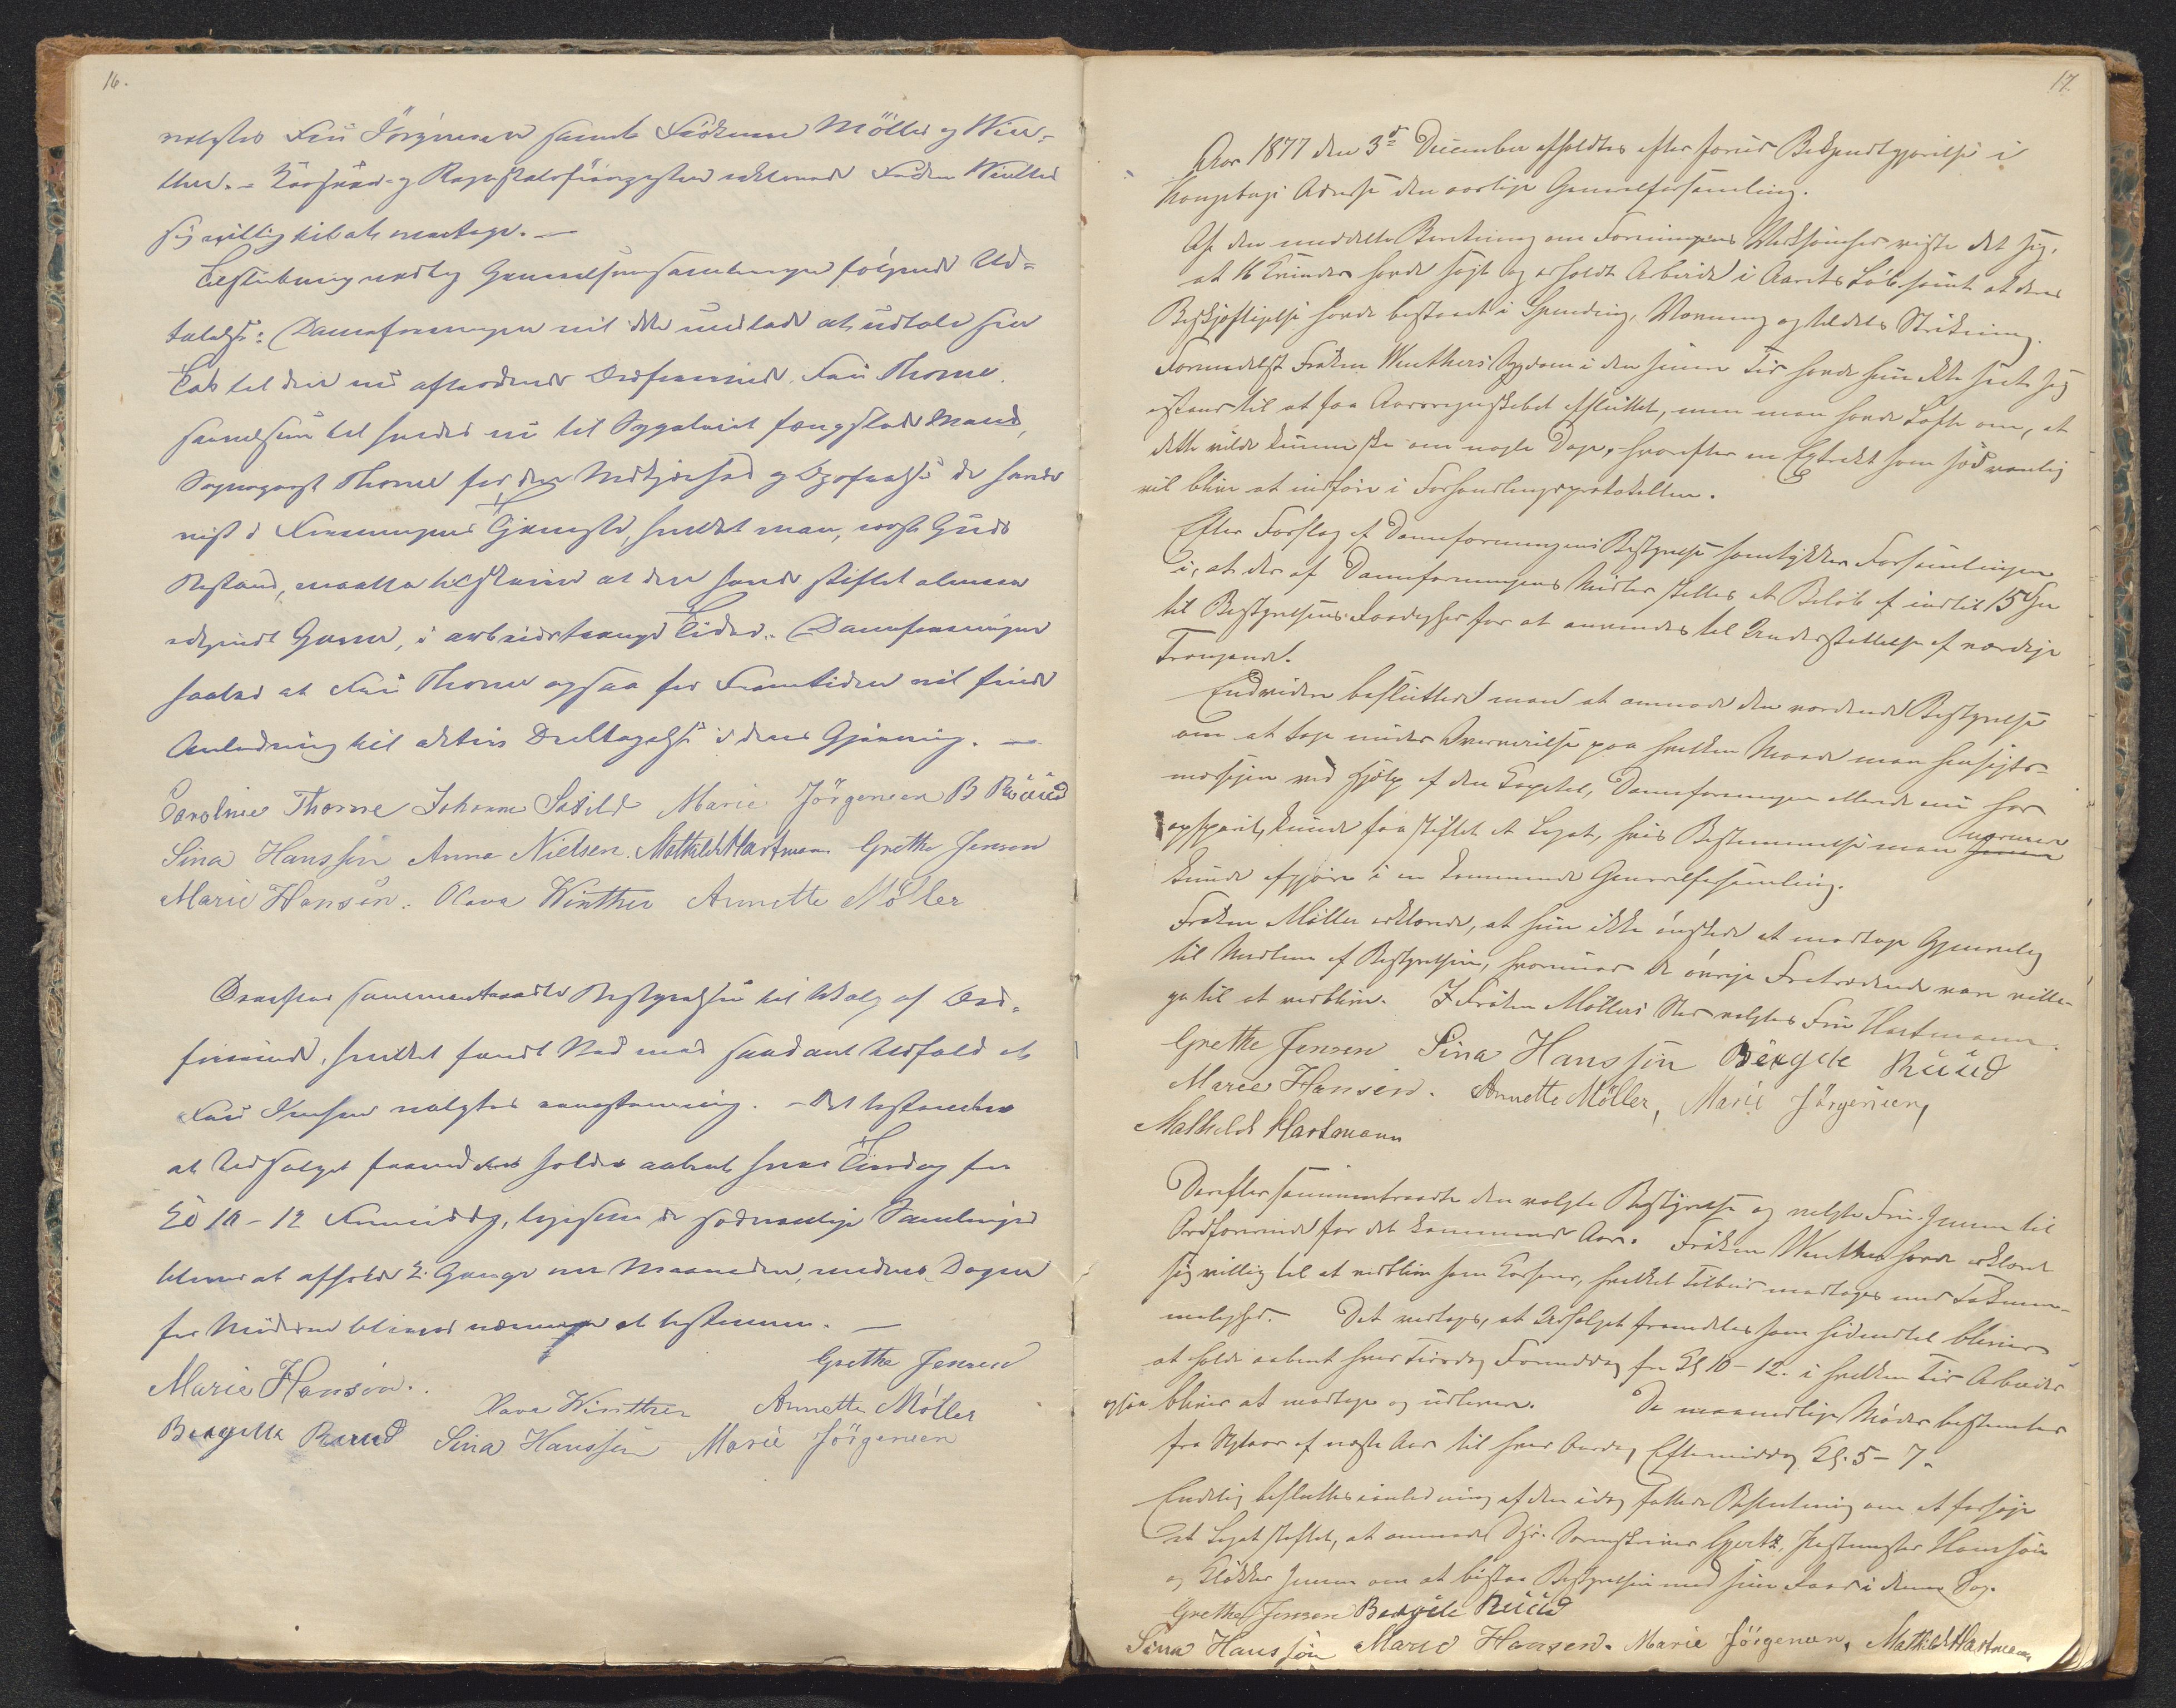 16.
valgtes Fru Jørgensen samt Frøknerne Möller og Win-
ther. – Kasserer- og Regnskabsførerposten erklærede Frøken Winther
sig villig til at modtage. –
Tilslutning vedtog Generalforsamlingen følgende Ud-
talelse: Dameforeningen vil ikke undlade at udtale sin
Tak til den nu aftrædende Ordførerinde, Fru Thorne
samt til hendes nu til Sygeleiet fængslede Mand,
Sogneprest Thorne for den Virksomhed og Opofrelse de havde
vist i Foreningens Tjeneste, hvilket man, næst Guds
Bistand, maatte tilskrive at den havde stiftet almen
Gavn, i arbeidstrange Tider. Dameforeningen
haaber at Fru Thorne ogsaa for Fremtiden vil finde
Anledning til aktiv Deeltagelse i dens Gjerning. –
Caroline Thorne Johanne Saxild Marie Jörgensen B Ruud
Sina Hanssen Anna Nielsen. Mathilde Hartmann Grethe Jensen
Marie Hansen. Olava Winther Annette Møller
Derefter sammentraadte Bestyrelsen til Valg af Ord-
førerinde, hvilket fandt Sted med saadant Udfald at
Fru Jensen valgtes eenstemmig. – Det bestemtes
at Udsalget fremdeles holdes aabent hver Tirsdag fra
Kl 10 – 12 Formiddag, ligesom de sædvanlige Samlinger
bliver at afholde 2 Gange om Maaneden, medens Dagen
for Møderne bliver nærmere at bestemme. –
Grethe Jensen
Marie Hansen.
Olava Winther Annette Möller
Bergitte Ruud Sina Hanssen Marie Jörgensen
17.
Aar 1877 den 3die December afholdtes efter forud Bekjendtgjørelse i
Kongsbergs Adresse den aarlige Generalforsamling.
Af den meddelte Beretning om Foreningens Virksomhed viste det sig,
at 16 Kvinder havde søgt og erholdt Arbeide i Aarets Løb samt at deres
Beskjæftigelse havde bestaaet i Spinding, Vævning og tildels Strikning.
Formedelst Frøken Winthers Sygdom i den senere Tid havde hun ikke seet sig
istand til at faa Aarsregnskabet afsluttet, men man havde Løfte om, at
dette vilde kunne ske om nogle Dage, hvorefter en Extrakt som sædvanlig
vil blive at indføre i Forhandlingsprotokollen.
Efter Forslag af Dameforeningens Bestyrelse samtykker Forsamlingen
i, at der af Dameforeningens Midler stilles et Beløb af indtil 15 Spd
til Bestyrelsens Raadighed for at anvendes til Understøttelse af værdige
Trængende.
Endvidere besluttede man at anmode den vordende Bestyrelse
om at tage under Overveielse paa hvilken Maade man hensigts-
mæssigen ved Hjælp af den Kapital, Dameforeningen allerede nu har
opsparet, kunde faa stiftet et Legat, hvis Bestemmelse man nærmere
kunde afgjøre i en kommende Generalforsamling.
Frøken Møller erklærede, at hun ikke ønskede at modtage Gjenvalg
til Medlem af Bestyrelsen, hvorimod de øvrige Fratrædende vare villi-
ge til at vedblive. I Frøken Møllers Sted valgtes Fru Hartmann.
Grethe Jensen Sina Hanssen Bergete Ruud
Marie Hansen. Annette Möller, Marie Jörgensen,
Mathilde Hartmann
Derefter sammentraadte den valgte Bestyrelse og valgte Fru Jensen til
Ordførerinde for det kommende Aar. Frøken Winther havde erklæret
sig villig til at vedblive som Kasserer, hvilket Tilbud modtoges med Taknem-
melighed. Det vedtoges, at Udsalget fremdeles som hidindtil bliver
at holde aabent hver Tirsdag Formiddag fra Kl 10 – 12. i hvilken Tid Arbeide
ogsaa bliver at modtage og udlevere. De maanedlige Møder bestemtes
fra Nytaar af næste Aar til hver Onsdag Eftermiddag Kl. 5 – 7.
Endelig besluttedes i anledning af den idag fattede Beslutning om at forsøge
et Legat stiftet, at anmode Dhr. Sorenskriver Gjertz, Postmester Hanssen
og Klokker Jensen om at bistaa Bestyrelsen med sine Raad i denne Sag.
Grethe Jensen Bergete Ruud
Sina Hanssen Marie Hansen. Marie Jörgensen, Mathilde Hartmann